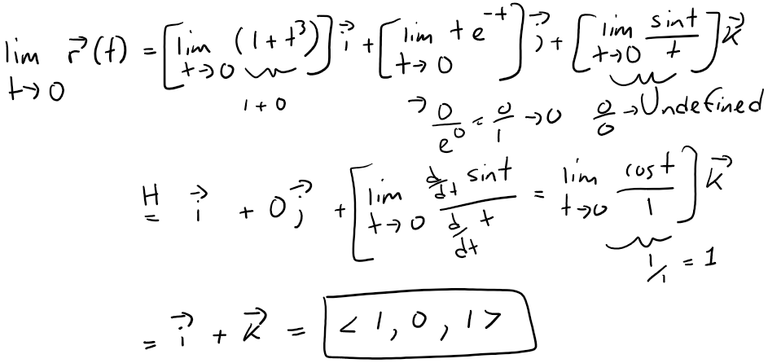 lim t→0 r⃗(t) = [lim t→0 (1+t³)] i⃗ + [lim t→0 t e^-t] j⃗ + [lim t→0 sint/t] k⃗
1+0 → 0/e^0 = 0/1 → 0 0/0 → Undefined
H= i⃗ + 0j⃗ + [lim t→0 d/dt sint / d/dt t = lim t→0 cost/1] k⃗
1/1 = 1
= i⃗ + k⃗ = <1, 0, 1>